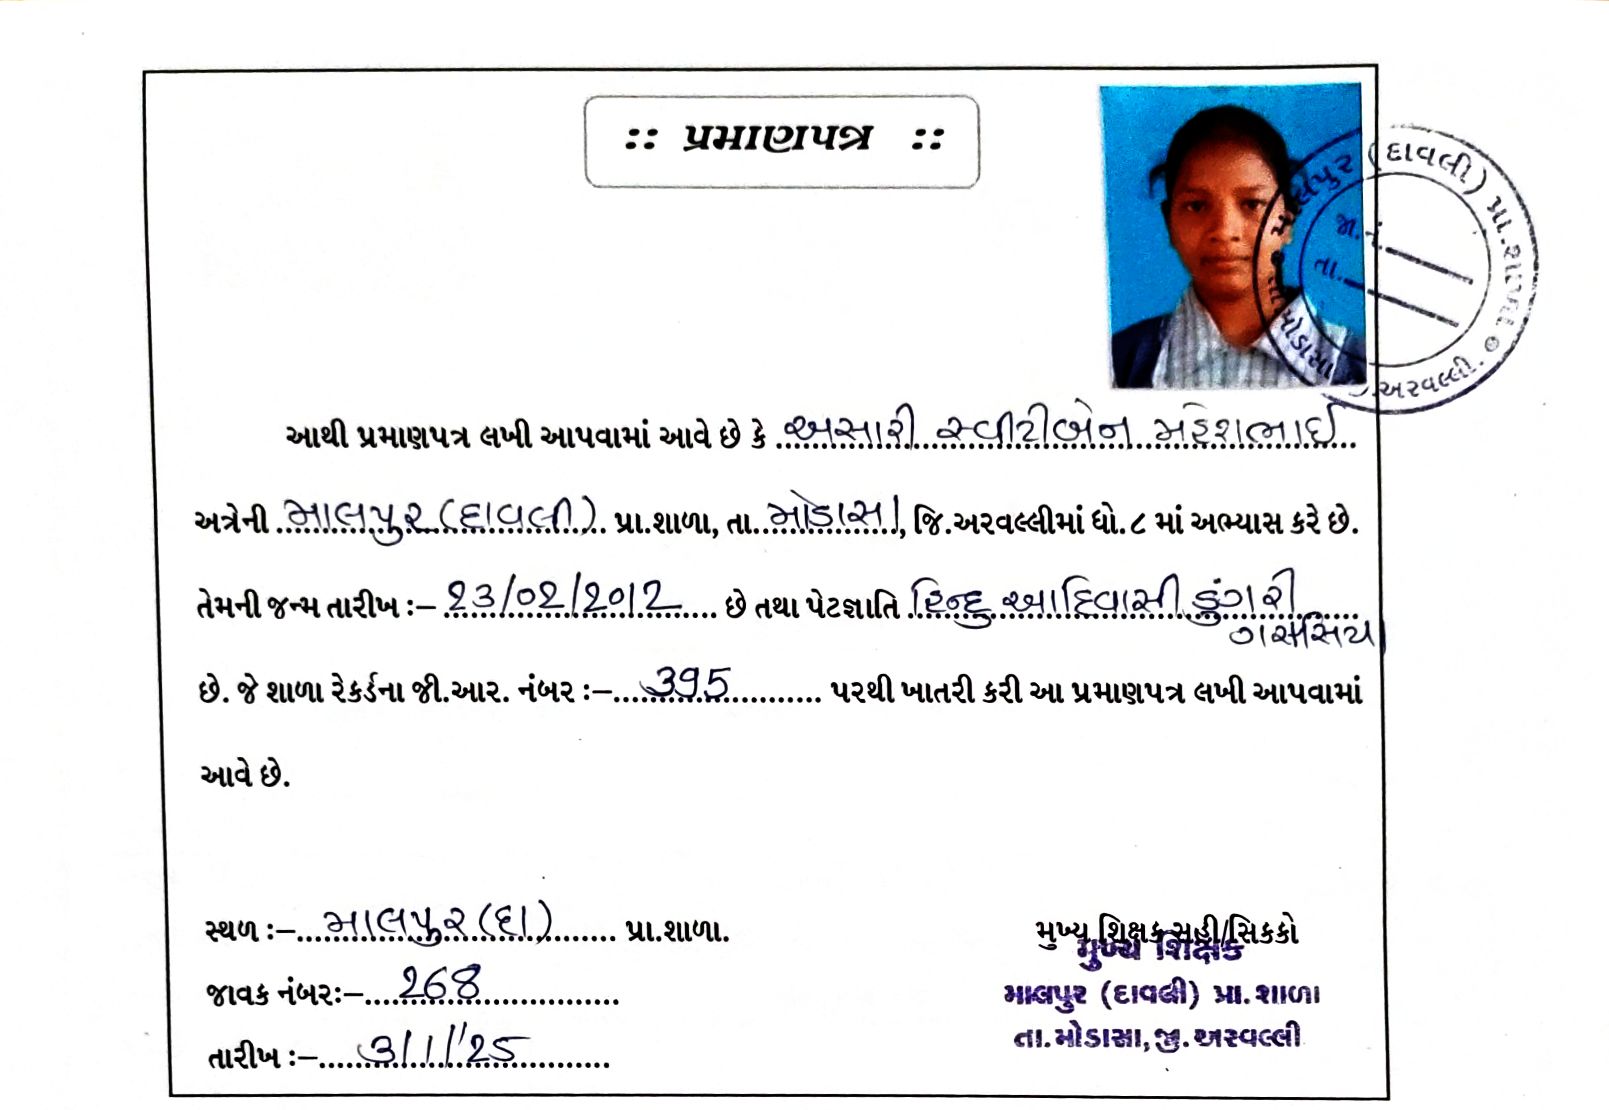 :: પ્રમાણપત્ર ::
માલપુર (દાવલી) પ્રા.શાળા
જા.નં.
તા.
તા.મોડાસા જી.અરવલ્લી.
આથી પ્રમાણપત્ર લખી આપવામાં આવે છે કે અસારી સ્વીટીબેન મહેશભાઈ
અત્રેની માલપુર (દાવલી) પ્રા.શાળા, તા. મોડાસા, જિ.અરવલ્લીમાં ધો.૮ માં અભ્યાસ કરે છે.
તેમની જન્મ તારીખ :- 23/02/2012 છે તથા પેટજ્ઞાતિ હિન્દુ આદિવાસી ડુંગરી
ગરાસિયા
છે. જે શાળા રેકર્ડના જી.આર. નંબર :- 395 પરથી ખાતરી કરી આ પ્રમાણપત્ર લખી આપવામાં
આવે છે.
સ્થળ :- માલપુર (દા) પ્રા.શાળા.
મુખ્ય શિક્ષક સહી/સિકકો
જાવક નંબર:- 268
મુખ્ય શિક્ષક
માલપુર (દાવલી) પ્રા.શાળા
તારીખ :- 3/1/'25
તા.મોડાસા,જી.અરવલ્લી